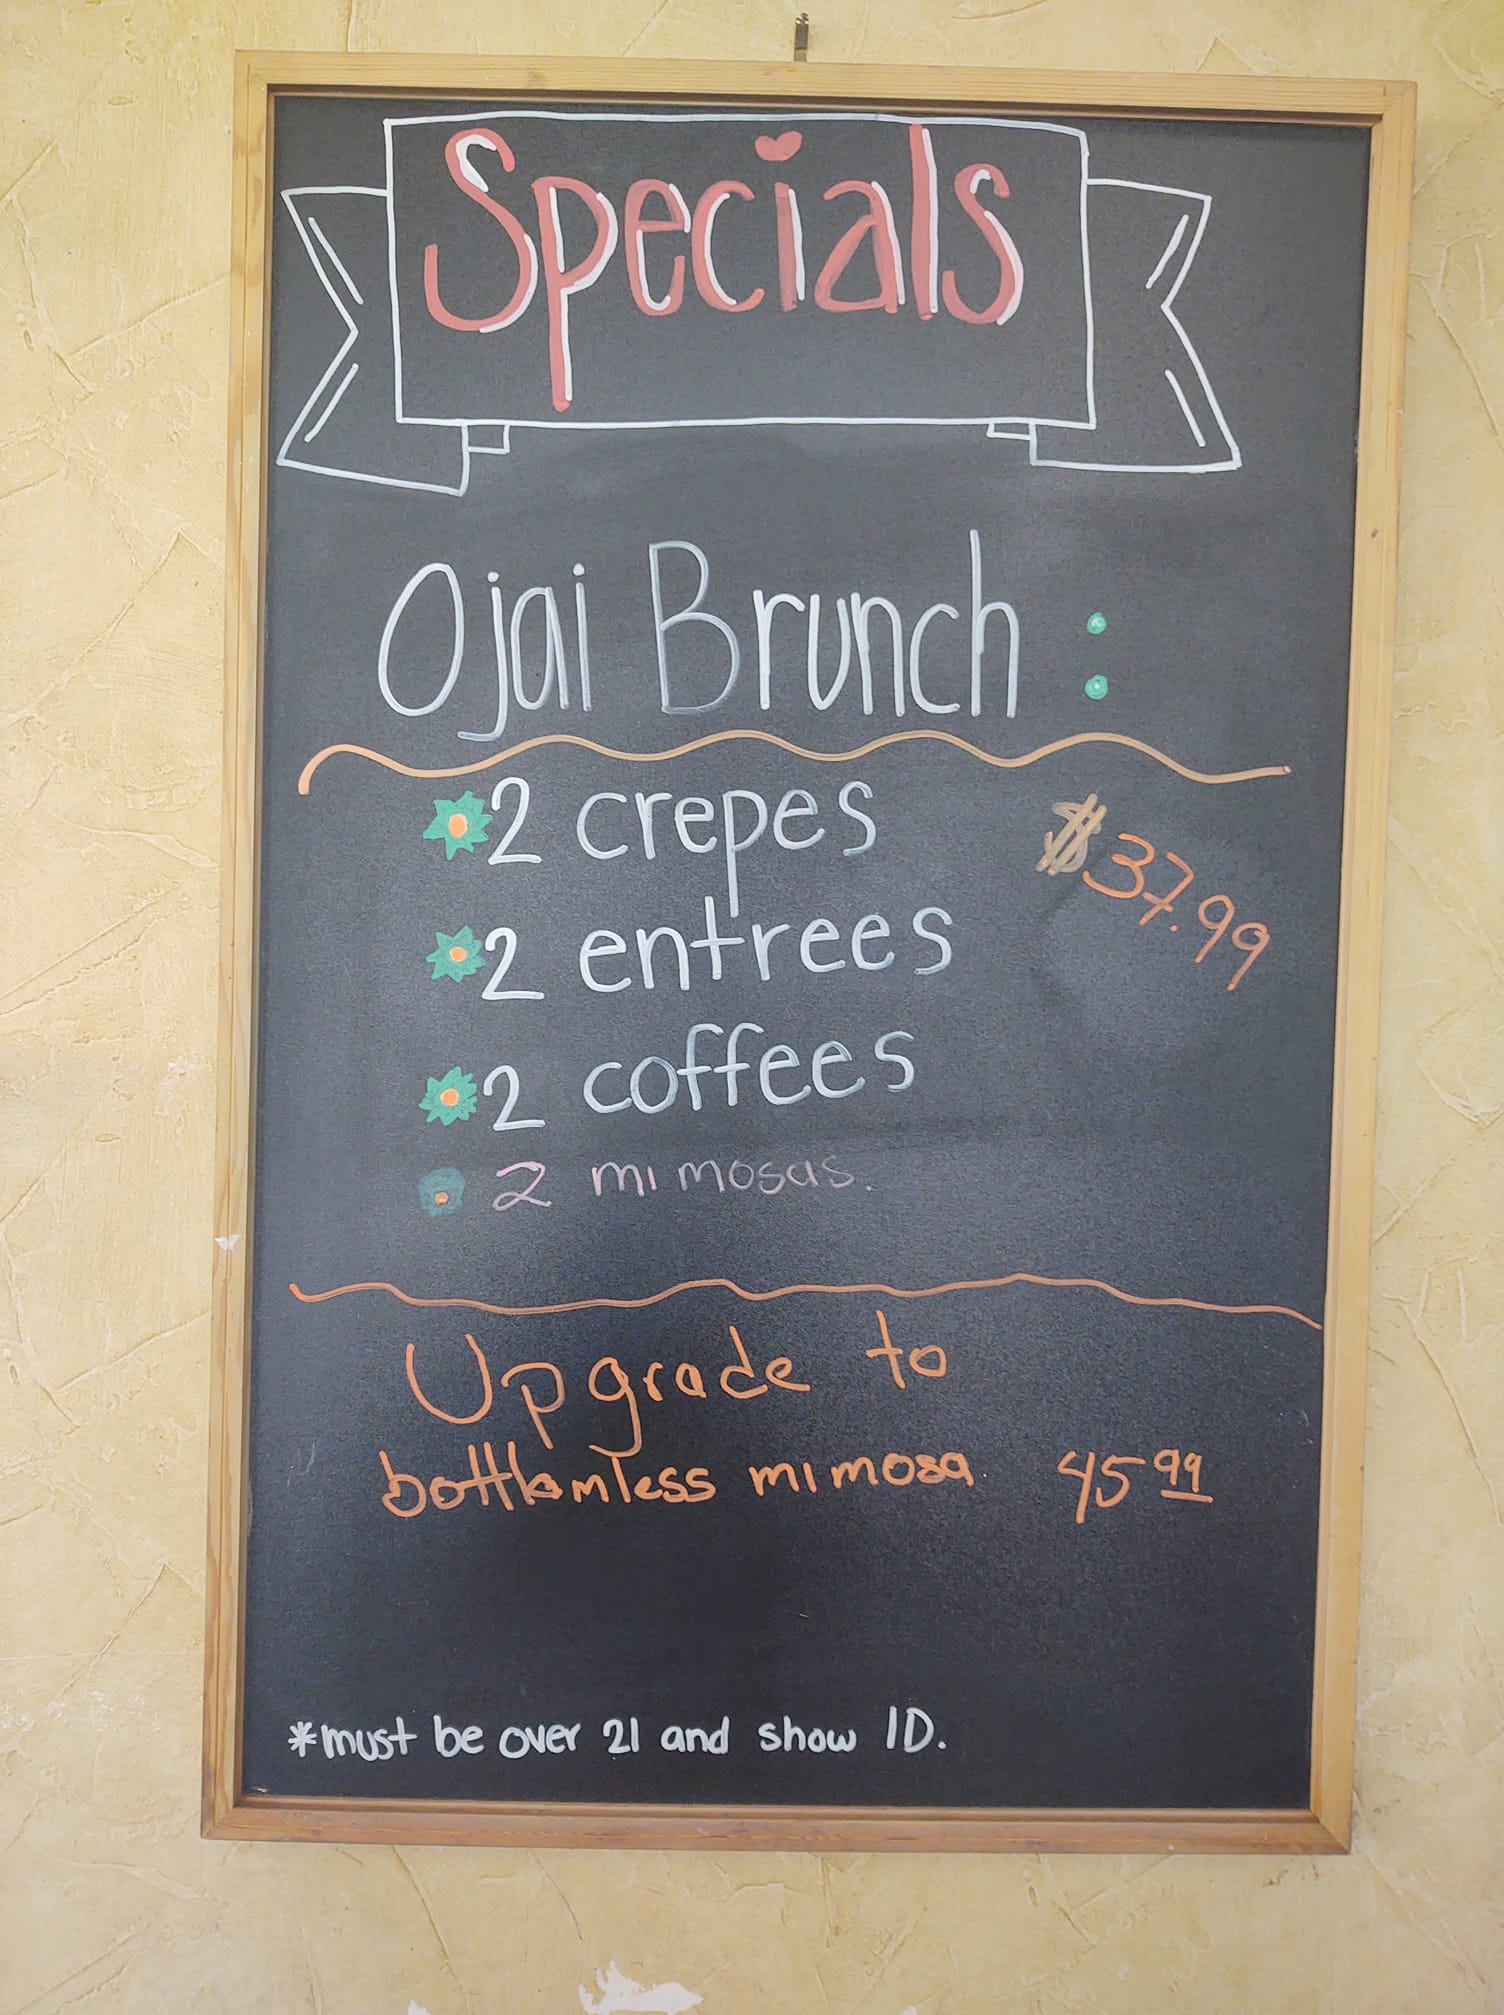 Specials
Ojai Brunch :
2 crepes
$37.99
2 entrees
2 coffees
2 mimosas.
Upgrade to
bottomless mimosa 45 99
*must be over 21 and show ID.